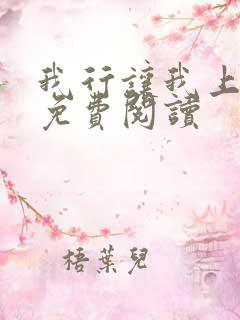 我行讓我上
免費閱讀
梧葉兒